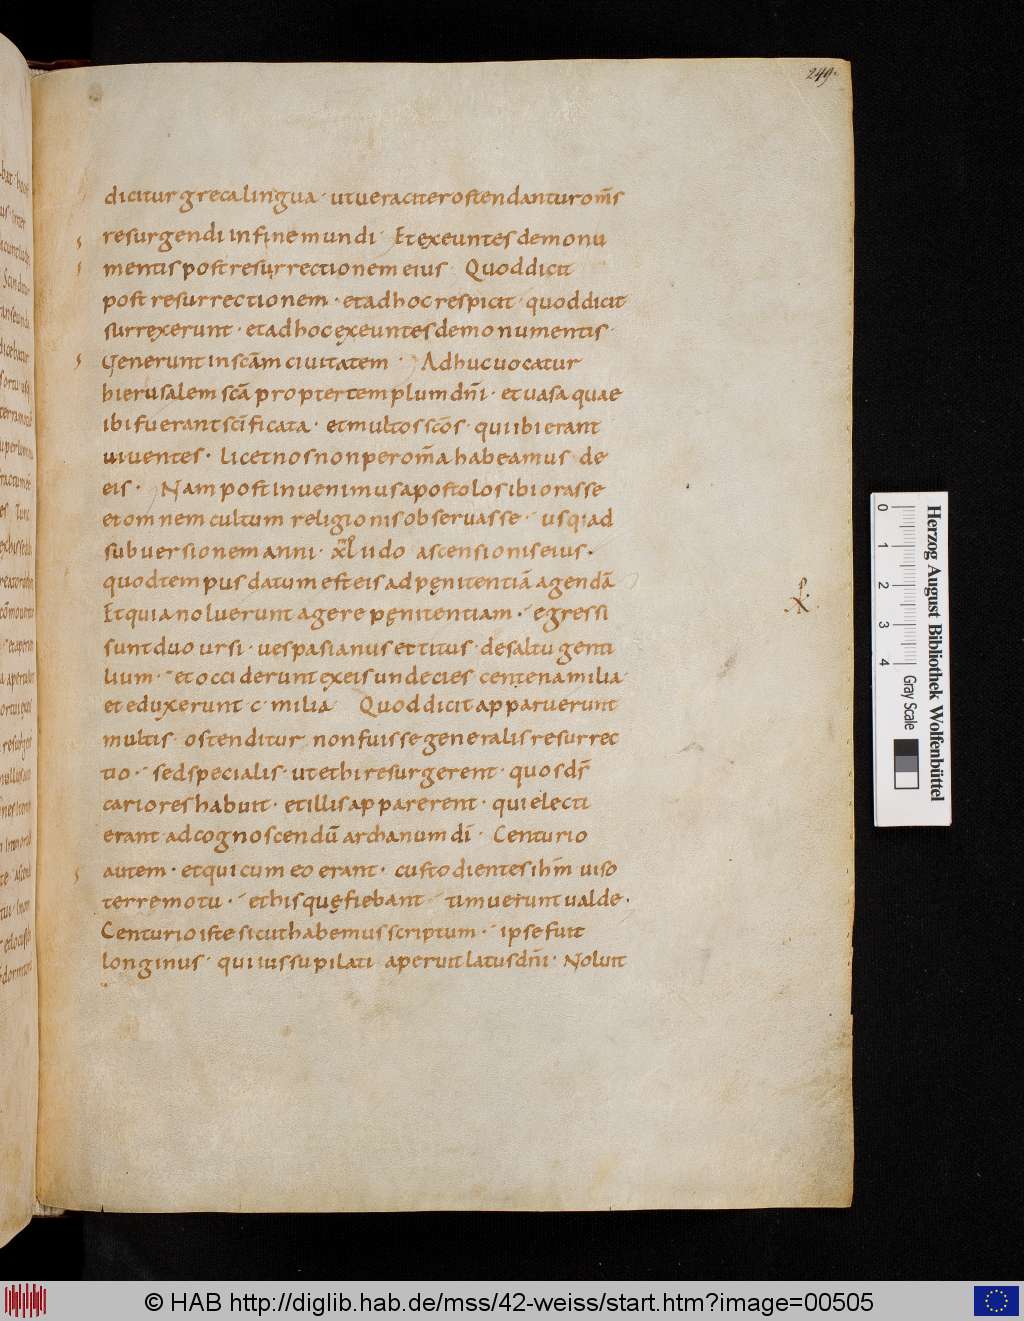 249.
dicitur greca lingua · ut ueraciter ostendantur om̄s
resurgendi in fine mundi · Et exeuntes de monu
mentis post resurrectionem eius Quod dicit
post resurrectionem · et ad hoc respicit · quod dicit
surrexerunt · et ad hoc exeuntes de monumentis ·
Uenerunt in scām ciuitatem · Ad huc uocatur
hierusalem scā propter templum dn̄i · et uasa quae
ibi fuerant sc̄ificata · et multos scōs · qui ibi erant
uiuentes · licet nos non per om̄a habeamus de
eis · Nam post inuenimus apostolos ibi orasse
et omnem cultum religionis obseruasse · usq; ad
subuersionem anni · xl ii do ascensionis eius ·
quod tempus datum est eis ad pęnitentiā agendā
Et quia noluerunt agere pęnitentiam · egressi
sunt duo ursi · uespasianus et titus · de saltu genti
lium · et occiderunt ex eis undecies centena milia
et eduxerunt · c · milia Quod dicit apparuerunt
multis · ostenditur non fuisse generalis resurrec
tio · sed specialis · ut et hi resurgerent · quos dſ̄
cariores habuit · et illis apparerent · qui electi
erant ad cognoscendū archanum dī · Centurio
autem · et qui cum eo erant · custodientes ihm̄ uiso
terre motu · et his quę fiebant timuerunt ualde ·
Centurio iste sicut habemus scriptum · ipse fuit
longinus · qui iussu pilati aperuit latus dn̄i · Noluit
Herzog August Bibliothek Wolfenbüttel
0 1 2 3 4 Gray Scale
© HAB http://diglib.hab.de/mss/42-weiss/start.htm?image=00505